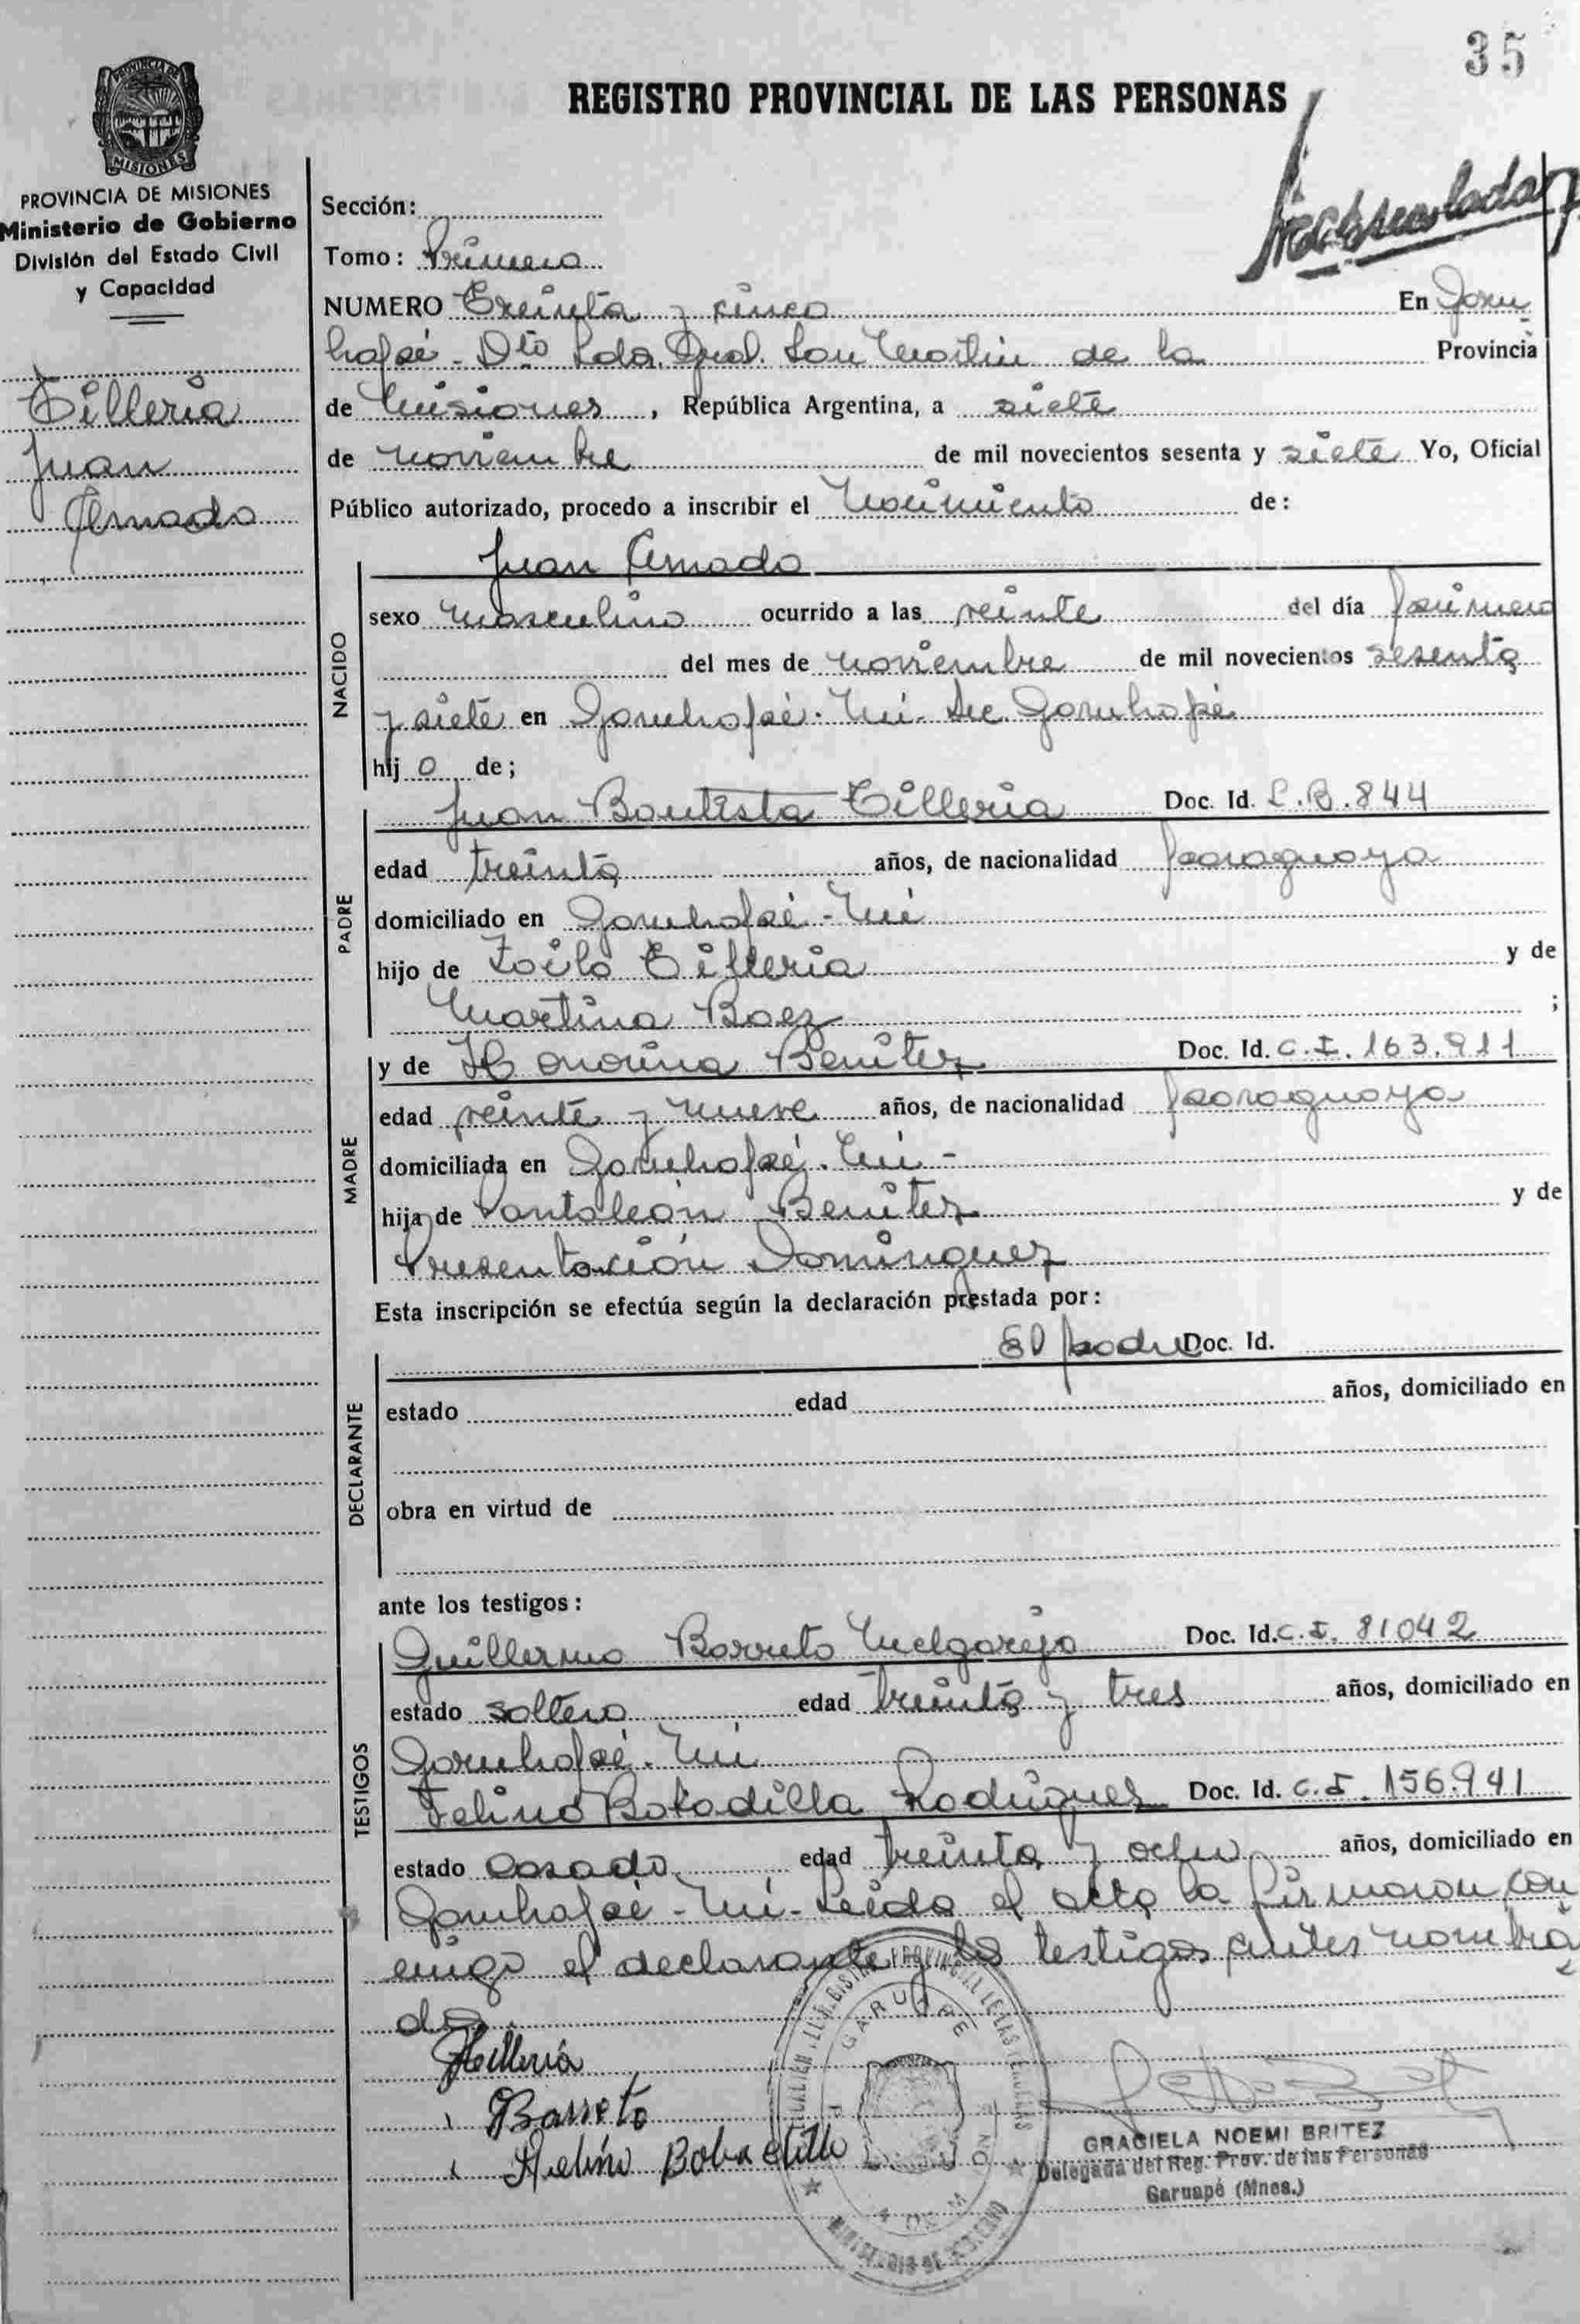 35
REGISTRO PROVINCIAL DE LAS PERSONAS
PROVINCIA DE
MISIONES
PROVINCIA DE MISIONES
Ministerio de Gobierno
División del Estado Civil
y Capacidad
Tilleria
Juan
Amado
Sección:
Tomo: Primero
NUMERO Treinta y cinco En Garu-
hapé - Dto Ldor. Gral. San Martin de la Provincia
de Misiones, República Argentina, a siete
de noviembre de mil novecientos sesenta y siete Yo, Oficial
Público autorizado, procedo a inscribir el Nacimiento de:
Juan Amado
NACIDO
sexo masculino ocurrido a las veinte del día primero
del mes de noviembre de mil novecientos sesenta
y siete en Garuhapé. Mi. Sec. Garuhapé
hij o de;
PADRE
Juan Bautista Tilleria Doc. Id. L.B. 844
edad treinta años, de nacionalidad paraguaya
domiciliado en Garuhapé - Mi
hijo de Zoilo Tilleria y de
Martina Baez ;
MADRE
y de Honorina Benitez Doc. Id. C.I. 163.911
edad veinte y nueve años, de nacionalidad paraguaya
domiciliada en Garuhapé. Mi -
hija de Pantaleón Benitez y de
Presentación Dominguez
Esta inscripción se efectúa según la declaración prestada por:
DECLARANTE
El padre Doc. Id.
estado edad años, domiciliado en
obra en virtud de
ante los testigos:
TESTIGOS
Guillermo Barreto Melgarejo Doc. Id. C.I. 81042
estado soltero edad treinta y tres años, domiciliado en
Garuhapé. Mi
Felino Bobadilla Rodriguez Doc. Id. C.I. 156.941
estado casado edad treinta y ocho años, domiciliado en
Garuhapé - Mi - Leida el acta la firmaron con
migo el declarante y los testigos antes nombra
dos
Tilleria
Barreto
Felino Bobadilla
GARUAPE
GRACIELA NOEMI BRITEZ
Delegada del Reg. Prov. de las Personas
Garuapé (Mnes.)